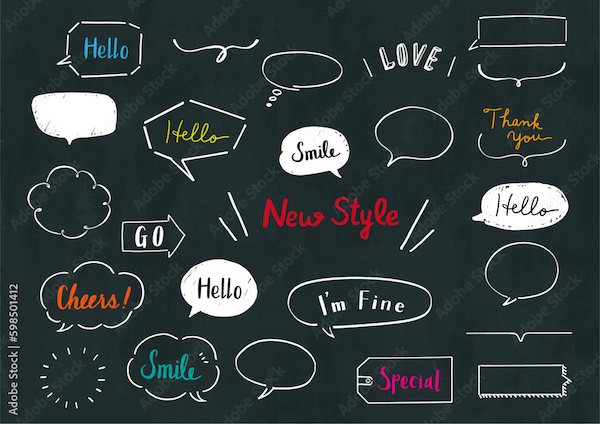 Hello
LOVE
Hello
Smile
Thank
You
Hello
New Style
GO
Cheers!
Hello
I'm Fine
Smile
Special
Adobe Stock | #598501412